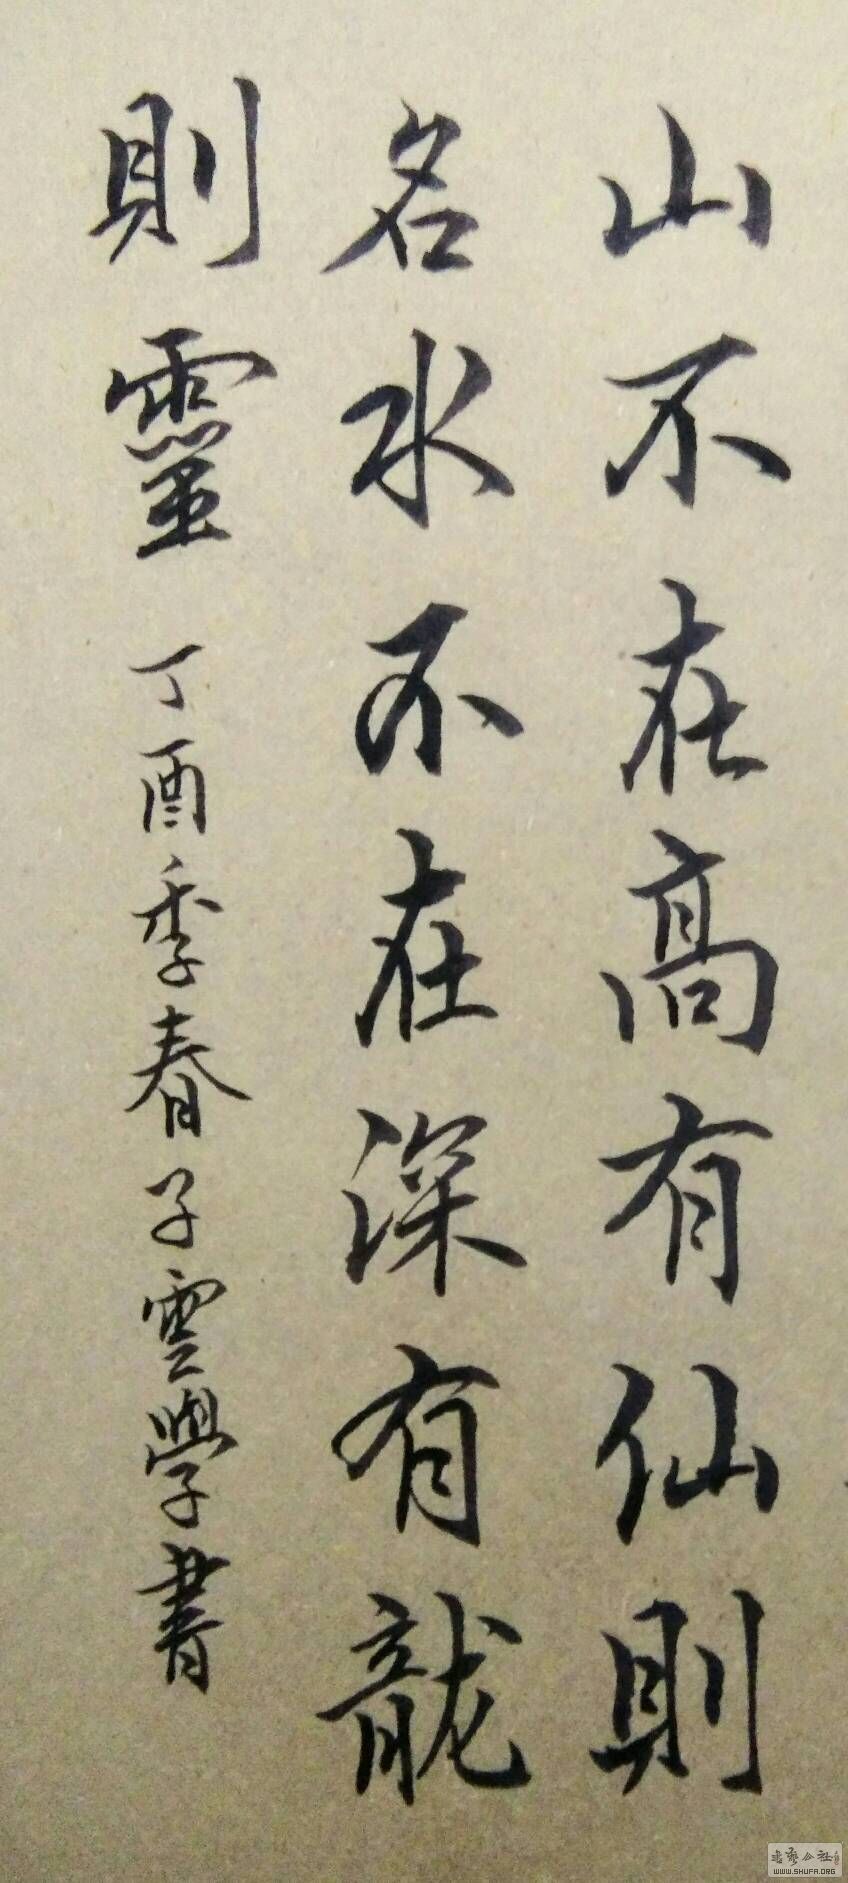 山不在高有仙則
名水不在深有龍
則靈
丁酉季春子雲學書
书艺公社
WWW.SHUFA.ORG